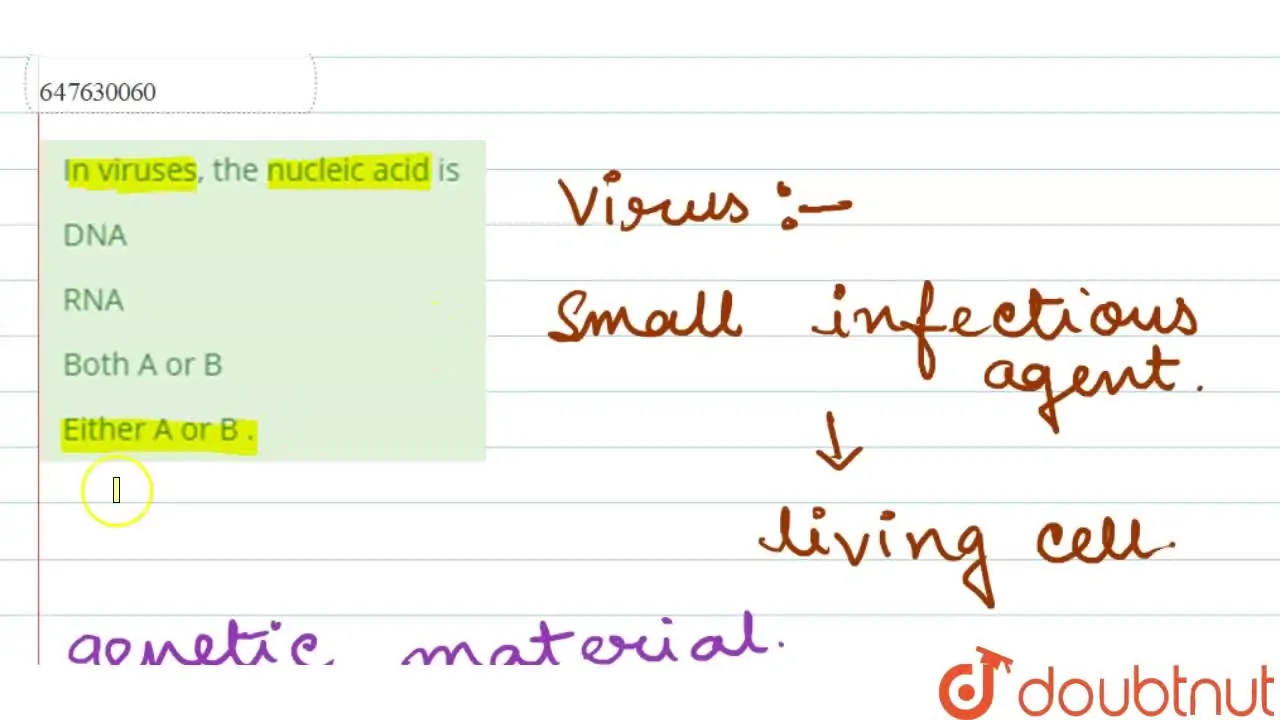 647630060
In viruses, the nucleic acid is
DNA
RNA
Both A or B
Either A or B .
Virus :-
Small infectious
agent.
↓
living cell
genetic material.
doubtnut